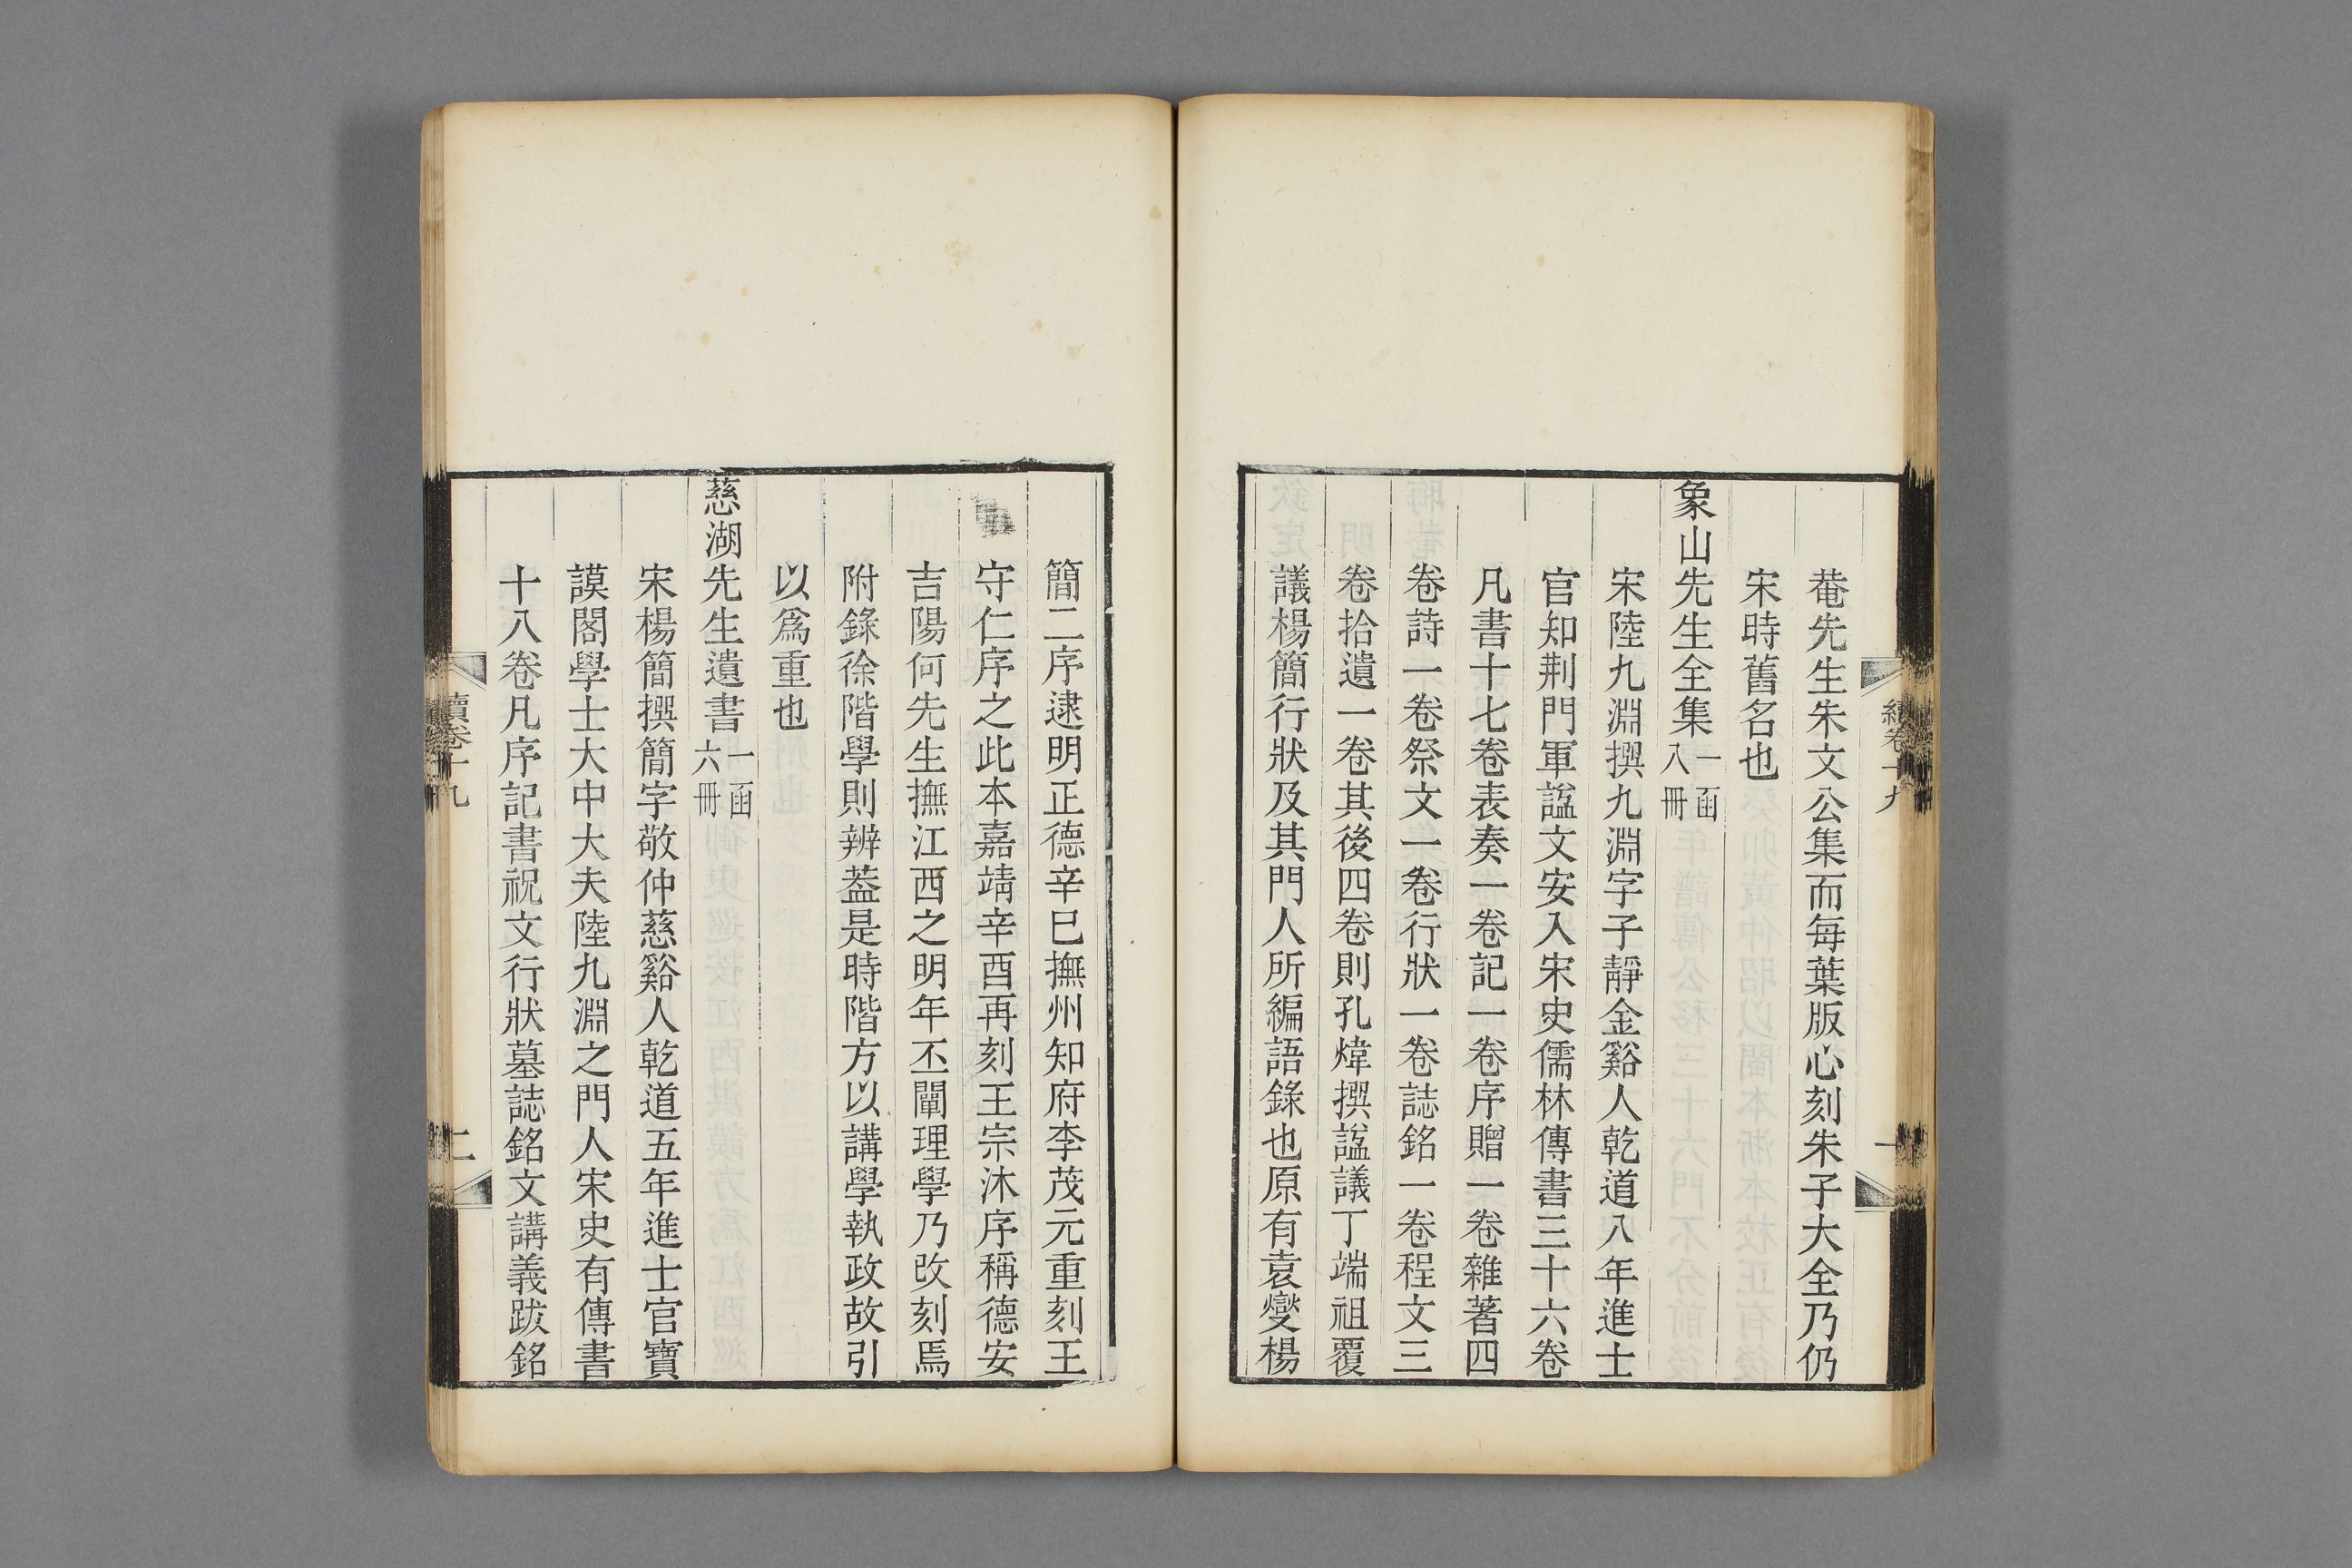 菴先生朱文公集而每葉版心刻朱子大全乃仍
宋時舊名也
象山先生全集一函八冊
宋陸九淵撰九淵字子靜金谿人乾道八年進士
官知荆門軍諡文安入宋史儒林傳書三十六卷
凡書十七卷表奏一卷記一卷序贈一卷雜著四
卷詩一卷祭文一卷行狀一卷誌銘一卷程文三
卷拾遺一卷其後四卷則孔煒撰諡議丁端祖覆
議楊簡行狀及其門人所編語錄也原有袁燮楊
簡二序逮明正德辛巳撫州知府李茂元重刻王
守仁序之此本嘉靖辛酉再刻王宗沐序稱德安
吉陽何先生撫江西之明年丕闡理學乃改刻焉
附錄徐階學則辨葢是時階方以講學執政故引
以爲重也
慈湖先生遺書一函六冊
宋楊簡撰簡字敬仲慈谿人乾道五年進士官寶
謨閣學士大中大夫陸九淵之門人宋史有傳書
十八卷凡序記書祝文行狀墓誌銘文講義跋銘
續卷十九
二